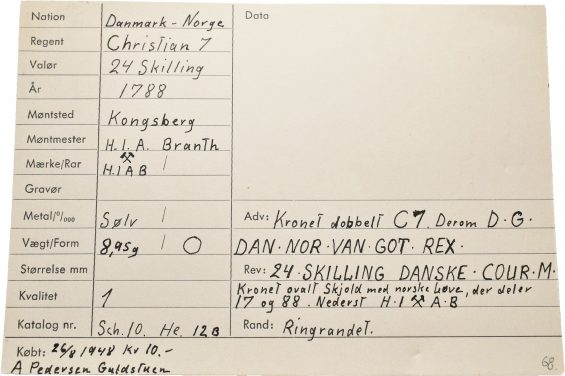 Nation Danmark - Norge
Regent Christian 7
Valør 24 Skilling
År 1788
Møntsted Kongsberg
Møntmester H.I.A. Branth
Mærke/Rar H.I⚒A B /
Gravør
Metal/⁰/₀₀₀ Sølv /
Vægt/Form 8,95g / O
Størrelse mm
Kvalitet 1
Katalog nr. Sch. 10. He. 12B
Købt: 26/8 1948 Kr 10.-
A Pedersen Guldstuen
Data
Adv: Kronet dobbelt C7. Derom D·G·
DAN·NOR·VAN·GOT·REX·
Rev: 24·SKILLING DANSKE·COUR·M·
Kronet ovalt Skjold med norske Løve, der deler
17 og 88. Nederst H·I⚒A·B
Rand: Ringrandet.
68.